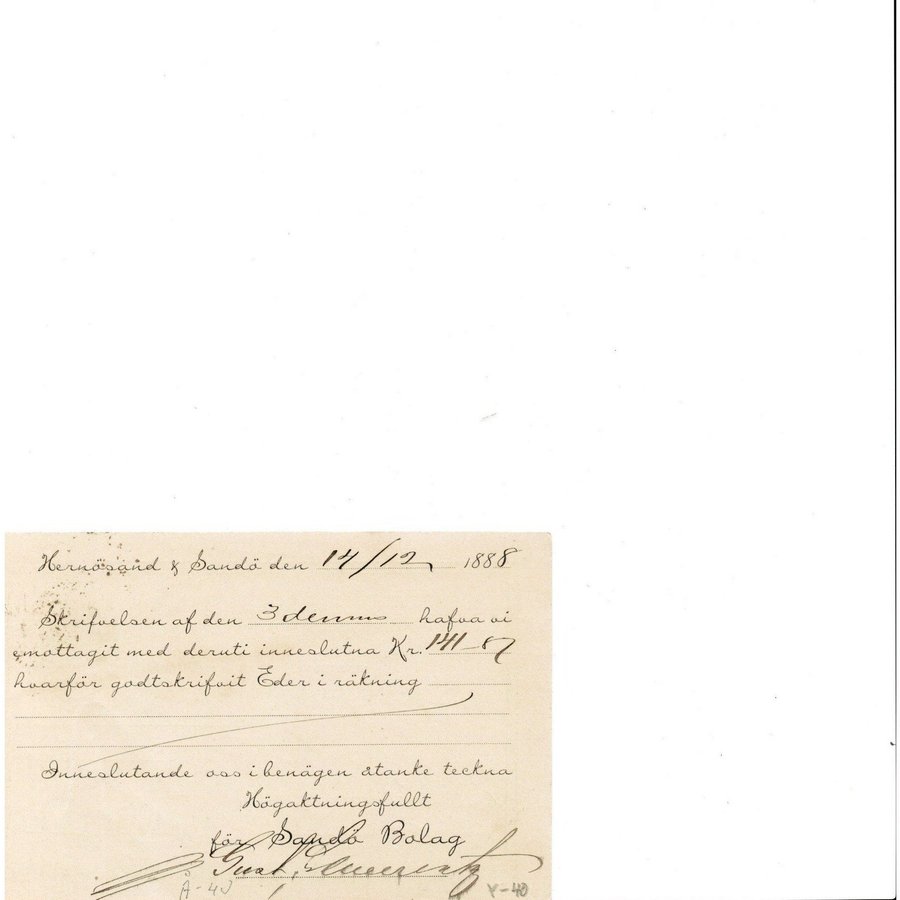 Hernösand & Sandö den 14/12 1888
Skrifvelsen af den 3 dennes hafva vi
emottagit med deruti inneslutna Kr. 141-87
hvarför godtskrifvit Eder i räkning
Inneslutande oss i benägen åtanke teckna
Högaktningsfullt
för Sandö Bolag
Gust.
Å-40 Y-40